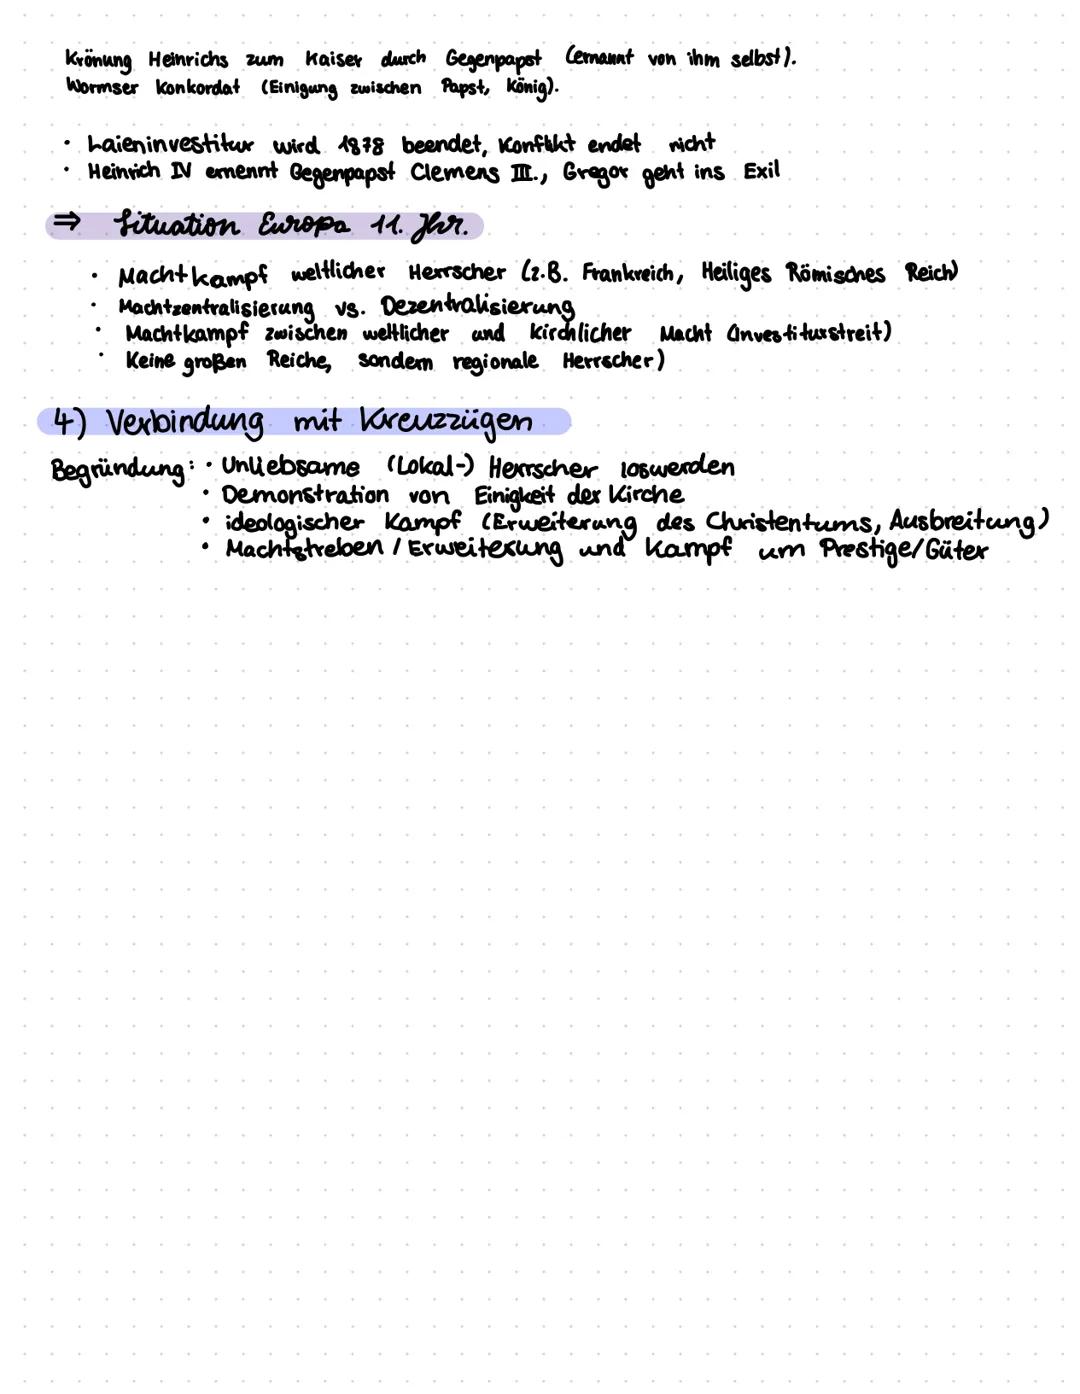 Krönung Heinrichs zum Kaiser durch Gegenpapst (ernannt von ihm selbst).
Wormser Konkordat (Einigung zwischen Papst, König).
• Laieninvestitur wird 1878 beendet, Konflikt endet nicht
• Heinrich IV ernennt Gegenpapst Clemens III., Gregor geht ins Exil
⇒ Situation Europa 11. Jhr.
• Machtkampf weltlicher Herrscher (z.B. Frankreich, Heiliges Römisches Reich)
• Machtzentralisierung vs. Dezentralisierung
• Machtkampf zwischen weltlicher und kirchlicher Macht (Investiturstreit)
• Keine großen Reiche, sondern regionale Herrscher)
4) Verbindung mit Kreuzzügen
Begründung: • Unliebsame (Lokal-) Herrscher loswerden
• Demonstration von Einigkeit der Kirche
• ideologischer Kampf (Erweiterung des Christentums, Ausbreitung)
• Machtstreben / Erweiterung und Kampf um Prestige/Güter